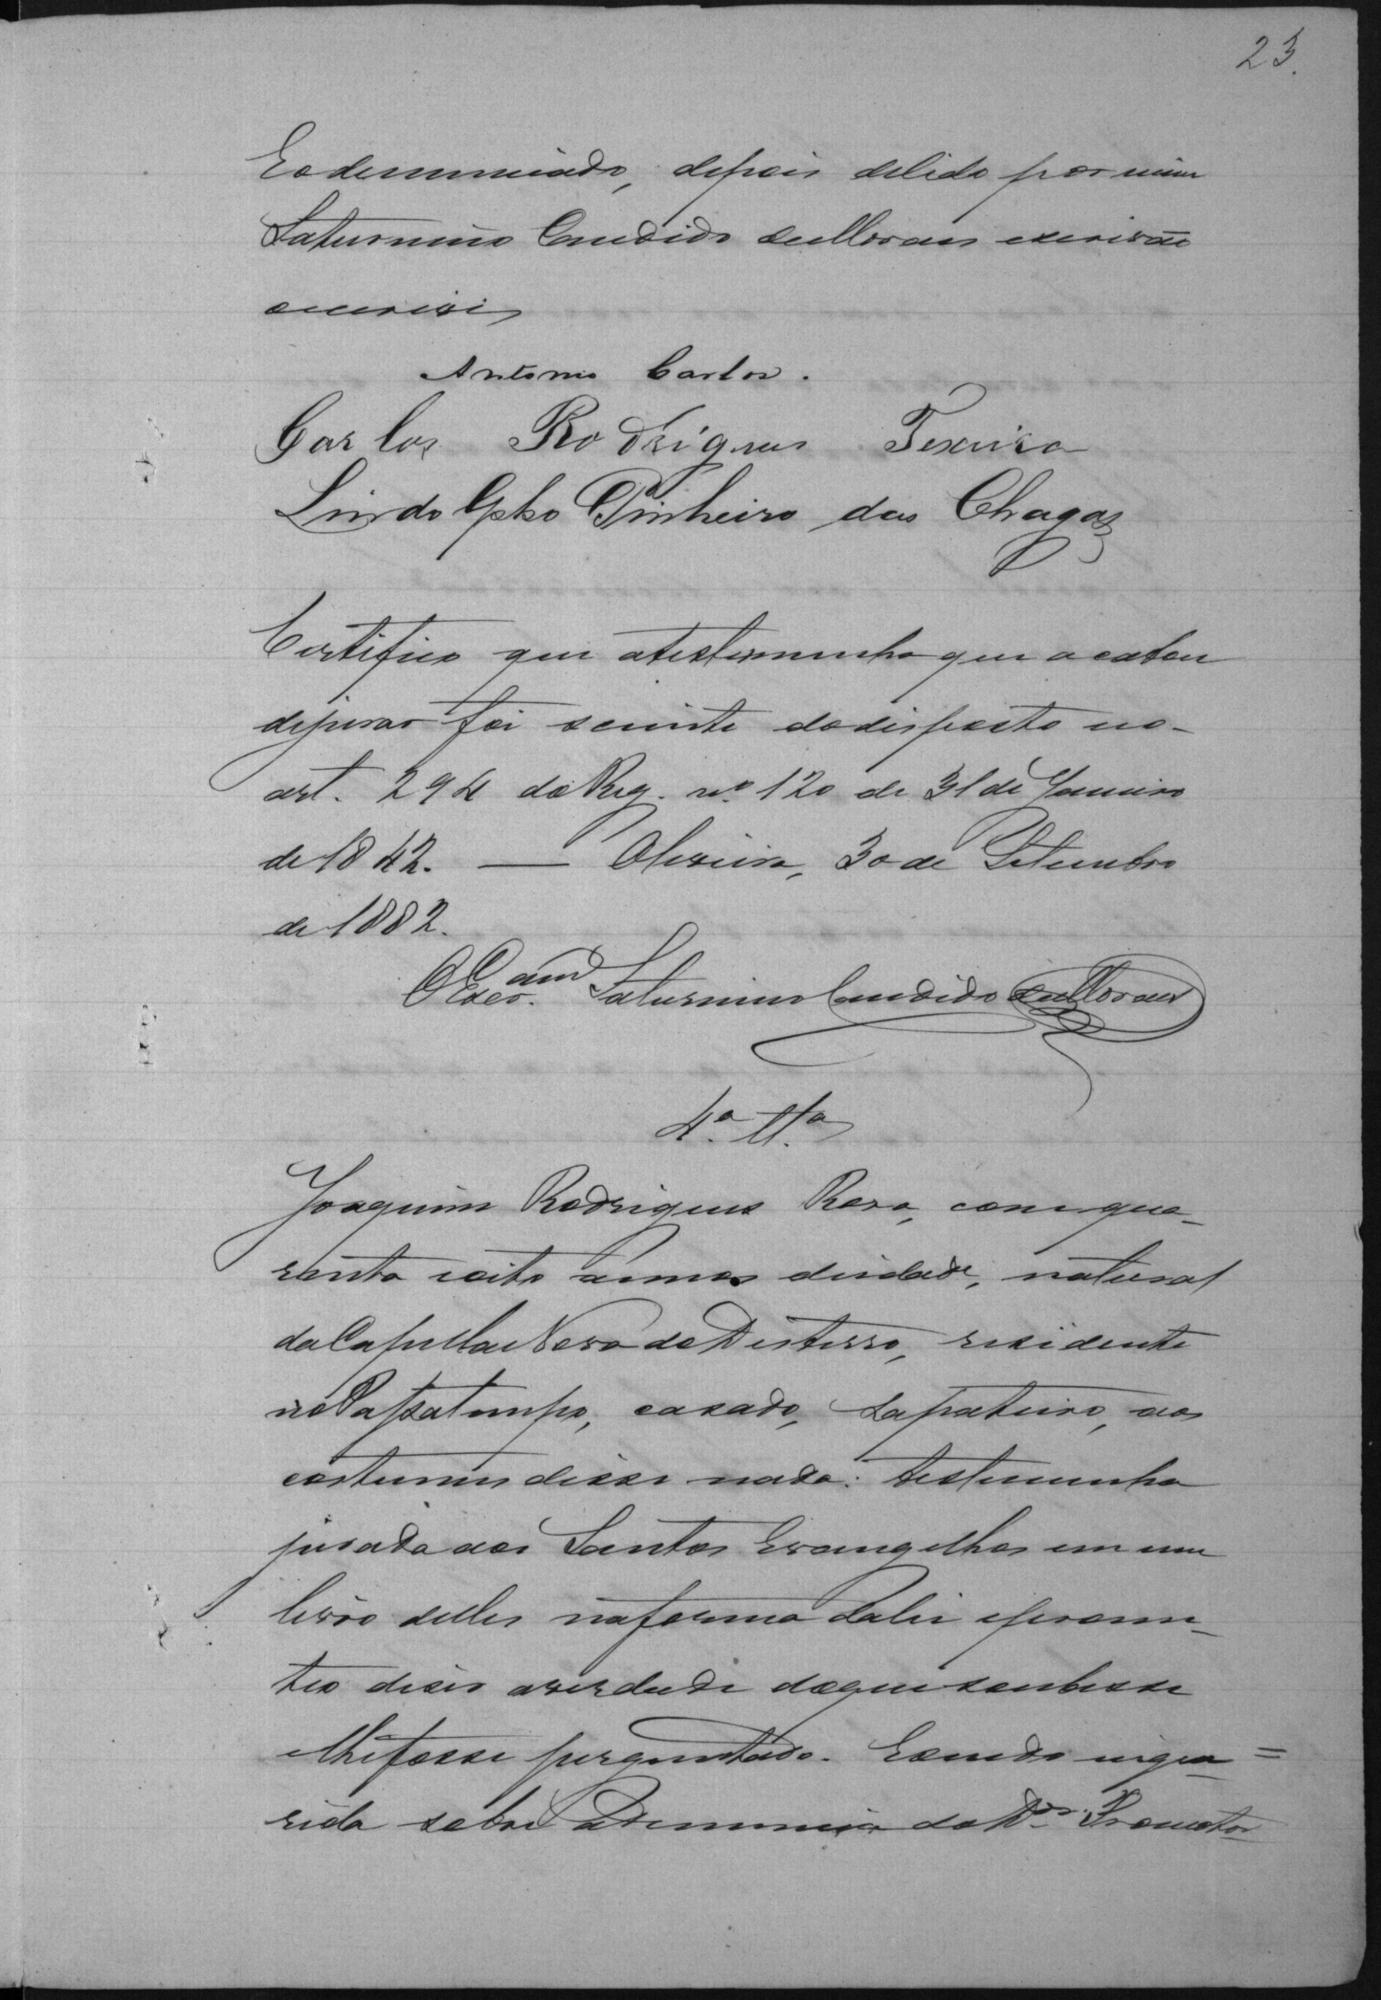 23.
Eo denunciado, depois delido por mim
Saturnino Candido de Moraes escrivão
escrivi
Antonio Carlos.
Carlos Rodrigues Texeira
Lindolpho Pinheiro das Chagas
Certifico que atestemunha que acabou
dejurar foi sciente dodisposto no-
art. 294 do Reg. nº 120 de 31 de Janeiro
de 1842. — Oliveira, 30 de Setembro
de 1882.
O Escr.am Saturnino Candido de Moraes
4ª Tª
Joaquim Rodrigues Rosa, com qua-
renta eoito annos deidade, natural
da Capella Nova do Desterro, residente
no Passatempo, casado, sapateiro, aos
costumes disse nada: testemunha
jurada aos Santos Evangelhos em um
livro delles naforma dalei eprome-
teo diser averdade doque soubesse
elhefosse perguntado. Esendo inque=
rida sobre adenuncia do Dr. Promotor